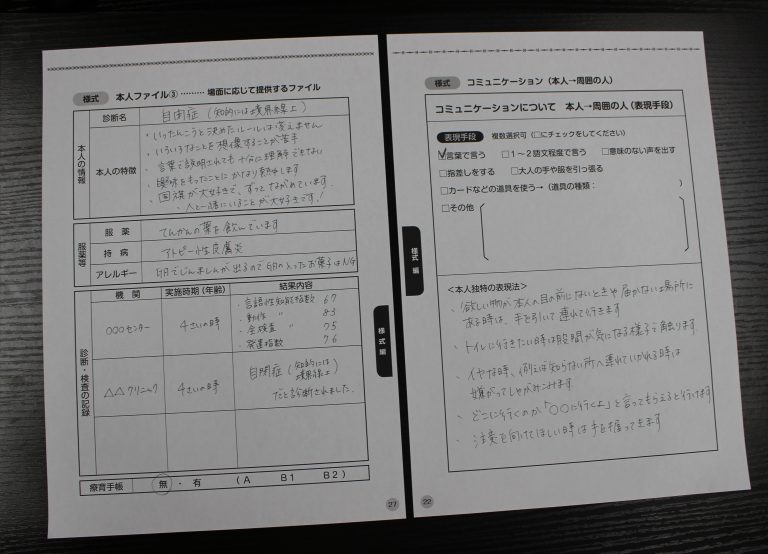 様式 本人ファイル③ ……… 場面に応じて提供するファイル
本人の情報
診断名 自閉症(知的には境界線上)
本人の特徴
・いったんこうと決めたルールは変えません
・いろいろなことを想像することが苦手
・言葉で説明されても十分に理解できない
・興味をもったことにかなり熱中します
・国旗が大好きで、ずっとながめています。
・人と一緒にいることが大好きです!
服薬等
服薬 てんかんの薬を飲んでいます
持病 アトピー性皮膚炎
アレルギー 卵でじんましんが出るので卵の入ったお菓子はNG
診断・検査の記録
機関 実施時期(年齢) 結果内容
○○○センター 4さいの時
・言語性知能指数 67
・動作 〃 83
・全検査 〃 75
・発達指数 76
△△クリニック 4さいの時
自閉症(知的には境界線上)
だと診断されました。
療育手帳 無・有 (A B1 B2)
様式編
27
様式 コミュニケーション(本人→周囲の人)
コミュニケーションについて 本人→周囲の人(表現手段)
表現手段 複数選択可(□にチェックをしてください)
☑言葉で言う □1～2語文程度で言う □意味のない声を出す
□指差しをする □大人の手や服を引っ張る
□カードなどの道具を使う→(道具の種類: )
□その他
<本人独特の表現法>
・欲しい物が本人の目の前にないときや届かない場所に
ある時は、手を引いて連れて行きます
・トイレに行きたい時は股間が気になる様子で触ります。
・イヤな時、例えば知らない所へ連れていかれる時は
嫌がってしゃがみこみます
・どこに行くのか「○○に行くよ」と言ってもらえると行けます
・注意を向けてほしい時は手を握ってきます
様式編
22